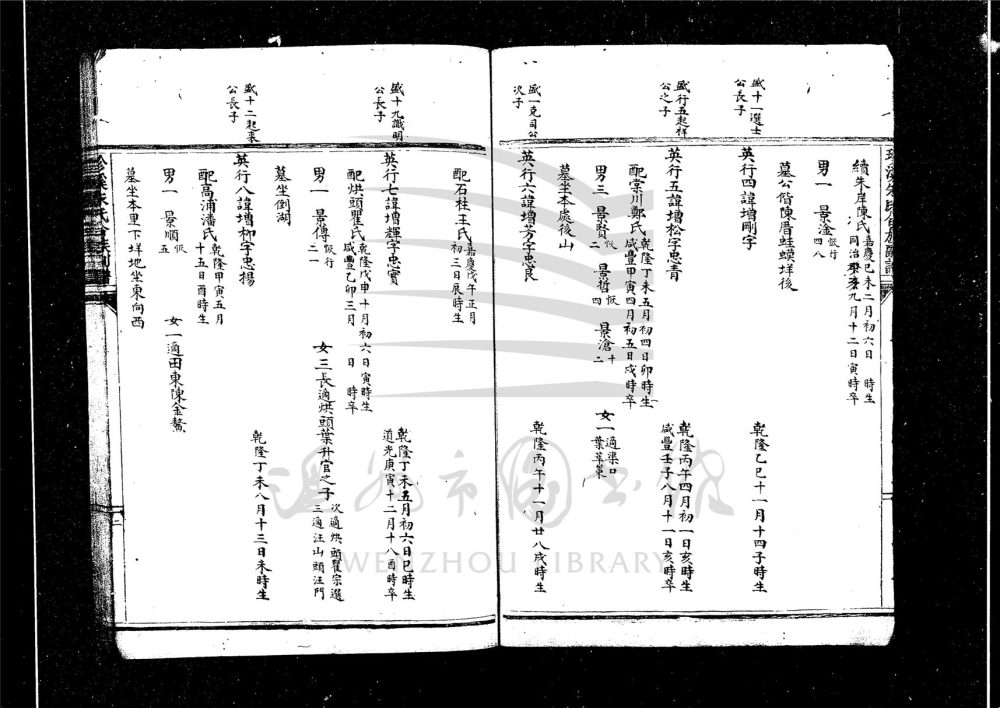 續朱岸陳氏 嘉慶己未二月初六日 時生
同治 九月十二日寅時卒
男一 景淦 恢行四八
墓公偕陳厝蛙蟆垟後
盛十一選士公長子
英行四諱增剛字
乾隆乙巳十一月十四子時生
盛行五起祥公之子
英行五諱增松字忠青
乾隆丙午四月初一日亥時生
咸豐壬子八月十一日亥時卒
配棠川鄭氏 乾隆丁未五月初四日卯時生
咸豐甲寅四月初五日戌時卒
男三 景賢 恢二 景哲 恢四 景滄 十二
女一 適渠口葉萃萊
墓坐本處後山
盛一克司公次子
英行六諱增芳字忠良
乾隆丙午十一月廿八戌時生
配石柱王氏 嘉慶戊午正月初三日辰時生
盛十九識明公長子
英行七諱增輝字忠實
乾隆丁未五月初六日巳時生
道光庚寅十二月十八酉時卒
配烘頭瞿氏 乾隆戊申十月初六日寅時生
咸豐乙卯三月 日 時卒
男一 景傳 恢行二一
女三長適烘頭葉升官之子 次適烘頭瞿宗選
三適汪山頭汪門
墓坐倒湖
盛十二起來公長子
英行八諱增柳字忠揚
乾隆丁未八月十三日未時生
配高浦潘氏 乾隆甲寅五月十五日酉時生
男一 景順 恢五
女一適田東陳金鰲
墓坐本里下垟地坐東向西
溫州市圖書館
WENZHOU LIBRARY